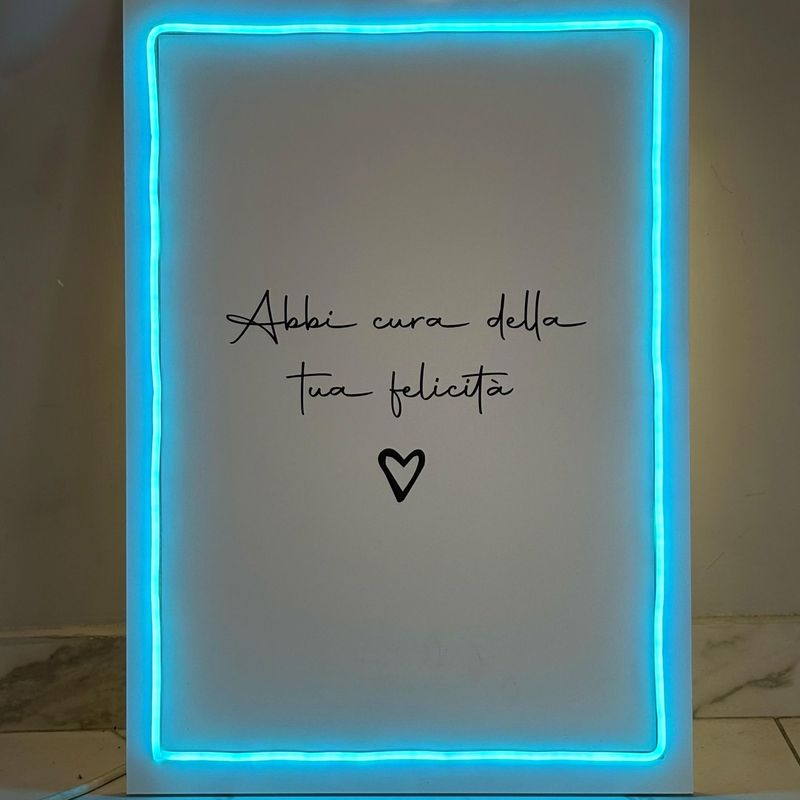 Abbi cura della
tua felicità